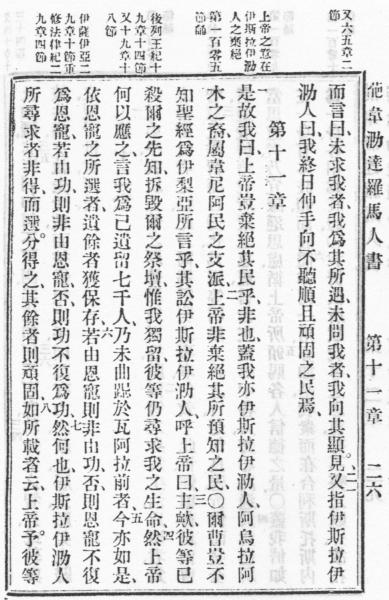 葩韋泐達羅馬人書 第十一章 二六
而言曰未求我者我爲其所遇未問我者我向其顯見又指伊斯拉伊
泐人曰我終日伸手向不聽順且頑固之民焉
第十一章
是故我曰上帝豈棄絕其民乎非也蓋我亦伊斯拉伊泐人阿烏拉阿
木之裔屬韋尼阿民之支派上帝非棄絕其所預知之民〇爾曹豈不
知聖經爲伊梨亞所言乎其訟伊斯拉伊泐人呼上帝曰主歟彼等已
殺爾之先知拆毀爾之祭壇惟我獨留彼等仍尋求我之生命然上帝
何以應之言我爲己遺留七千人乃未曲跽於瓦阿拉前者今亦如是
依恩寵之所選者遺餘者獲保存若由恩寵則非由功否則恩寵不復
爲恩寵若由功則非由恩寵否則功不復爲功然何也伊斯拉伊泐人
所尋求者非得而選分得之其餘者則頑固如所載者云上帝予彼等
又六五章二
節
上帝之意在
伊斯拉伊泐
人之棄絕
第一百零五
節誦
後列王紀十
九章十四節
又十九章十
八節
伊薩伊亞二
九章十節重
修法律紀二
九章四節